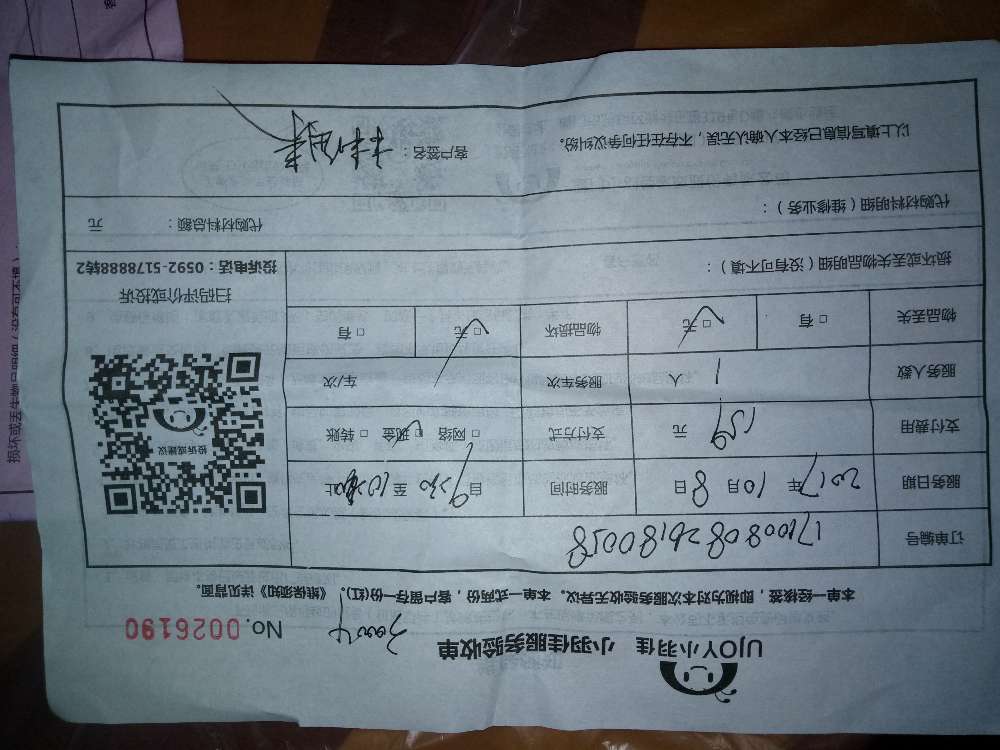 UJOY小羽佳 小羽佳服务验收单
No. 0026190
本单一经核签，即视为对本次服务验收无异议。本单一式两份，客户留存一份(红)。《维保须知》详见背面。
订单编号 1710080826180058
服务日期 2017年10月8日 服务时间 自9:30至10:30止
支付费用 159元 支付方式 □网络 □现金 □转账
服务人数 1人 服务车次 / 车/次
物品丢失 □有 □无 物品损坏 □无 □有
投诉或建议
扫码评价或投诉
投诉电话：0592-5178888转2
损坏或丢失物品明细（没有可不填）：
代购材料明细（维修业务）： 代购材料总额： 元
以上填写信息已经本人确认无误，不存在任何争议纠纷。 客户签名：
损坏或丢失物品明细（没有可不填）